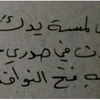 لمسة يدك
في صدري
فتح النوافذ